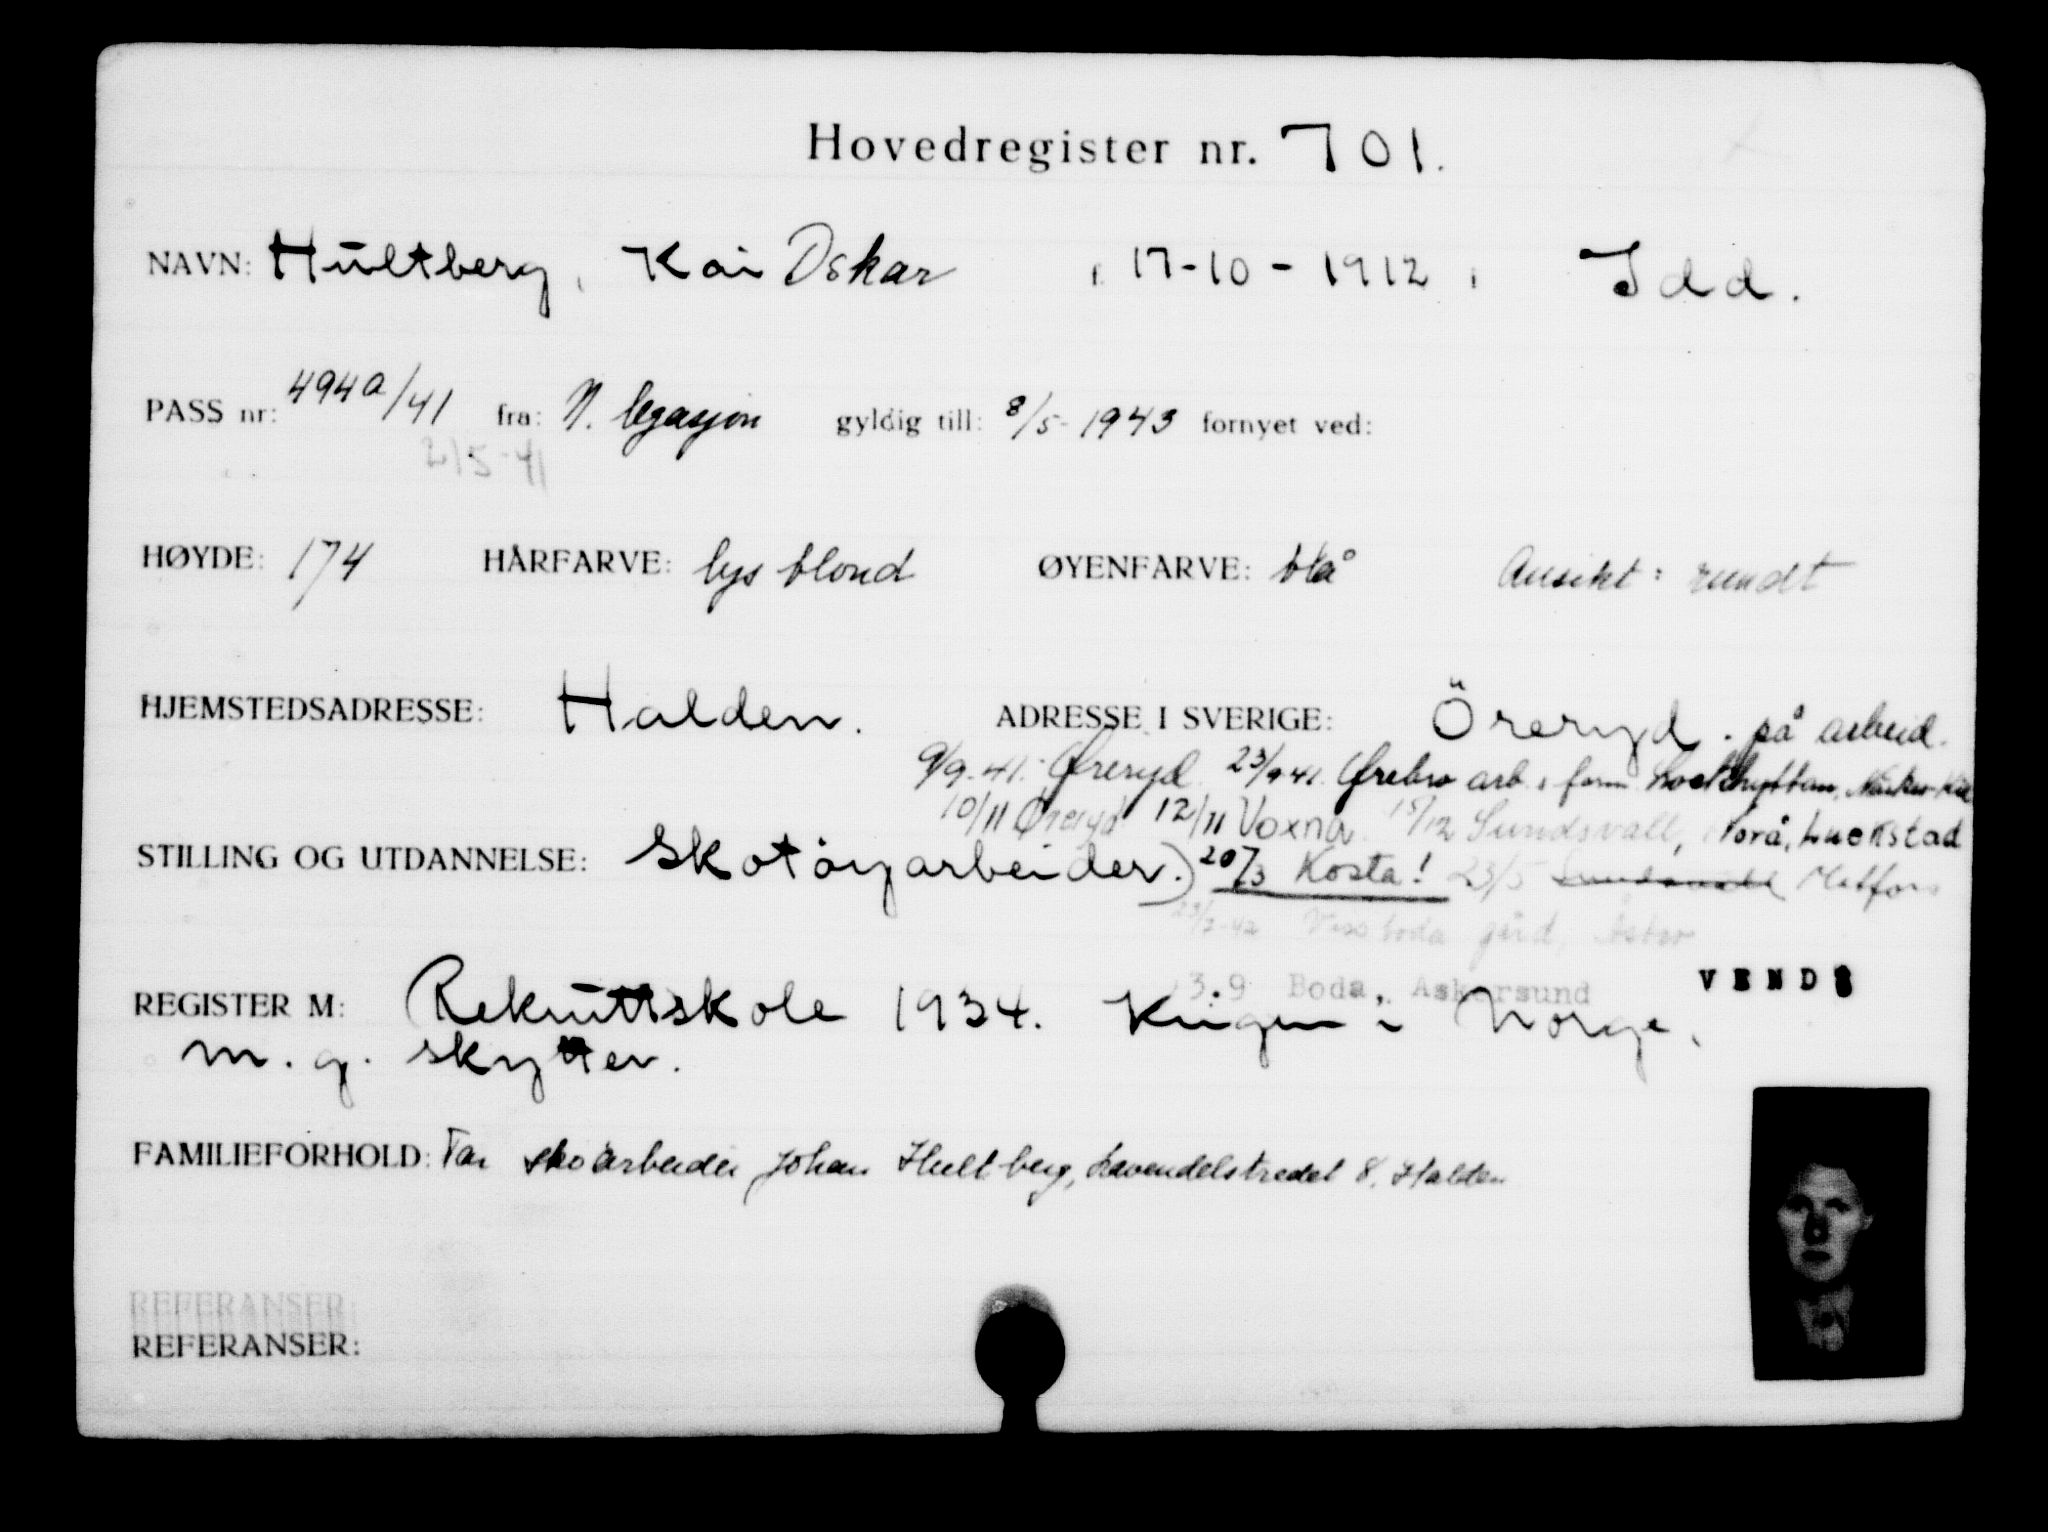 Hovedregister nr. 701.
NAVN: Hultberg, Kai Oskar , 17-10-1912, Idd.
PASS nr: 494a/41 fra: N. legasjon gyldig till: 8/5-1943 fornyet ved:
2/5-41
HØYDE: 174 HÅRFARVE: lys blond ØYENFARVE: blå Ansikt: rundt
HJEMSTEDSADRESSE: Halden. ADRESSE I SVERIGE: Öreryd. på arbeid.
9/9-41. Øreryd 23/9-41. Ørebro arb. i form
10/11 Øreryd 12/11 Voxna. 15/12 Sundsvall,
STILLING OG UTDANNELSE: Skotøyarbeider.) 20/3 Kosta! 23/5 Sundsvall Matfors
23/7-42 Vissboda gård,
3.9 Boda, Askersund VEND:
REGISTER M: Rekruttskole 1934. Krigen i Norge,
m.g. skytter.
FAMILIEFORHOLD: Far skoarbeider Johan Hultberg, Lavendelstredet 8, Halden
REFERANSER:
REFERANSER: